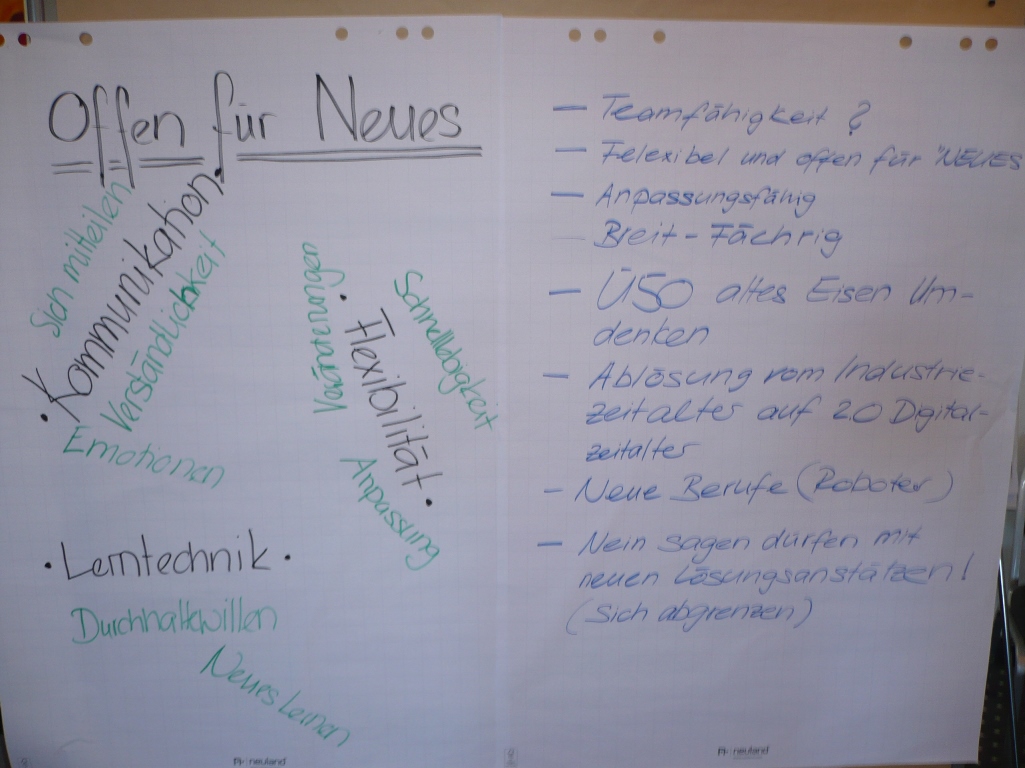 Offen für Neues
Sich mitteilen
• Kommunikation •
Verständlichkeit
Emotionen
Veränderungen
• Flexibilität •
Schnellebigkeit
Anpassung
• Lerntechnik •
Durchhaltewillen
Neues Lernen
neuland
— Teamfähigkeit ?
— Felexibel und offen für "NEUES
— Anpassungsfähig
— Breit-Fächrig
— Ü50 altes Eisen Um-
denken
— Ablösung vom Industrie-
zeitalter auf 2.0 Digital-
zeitalter
— Neue Berufe (Roboter)
— Nein sagen dürfen mit
neuen Lösungsanstätzen!
(Sich abgrenzen)
neuland